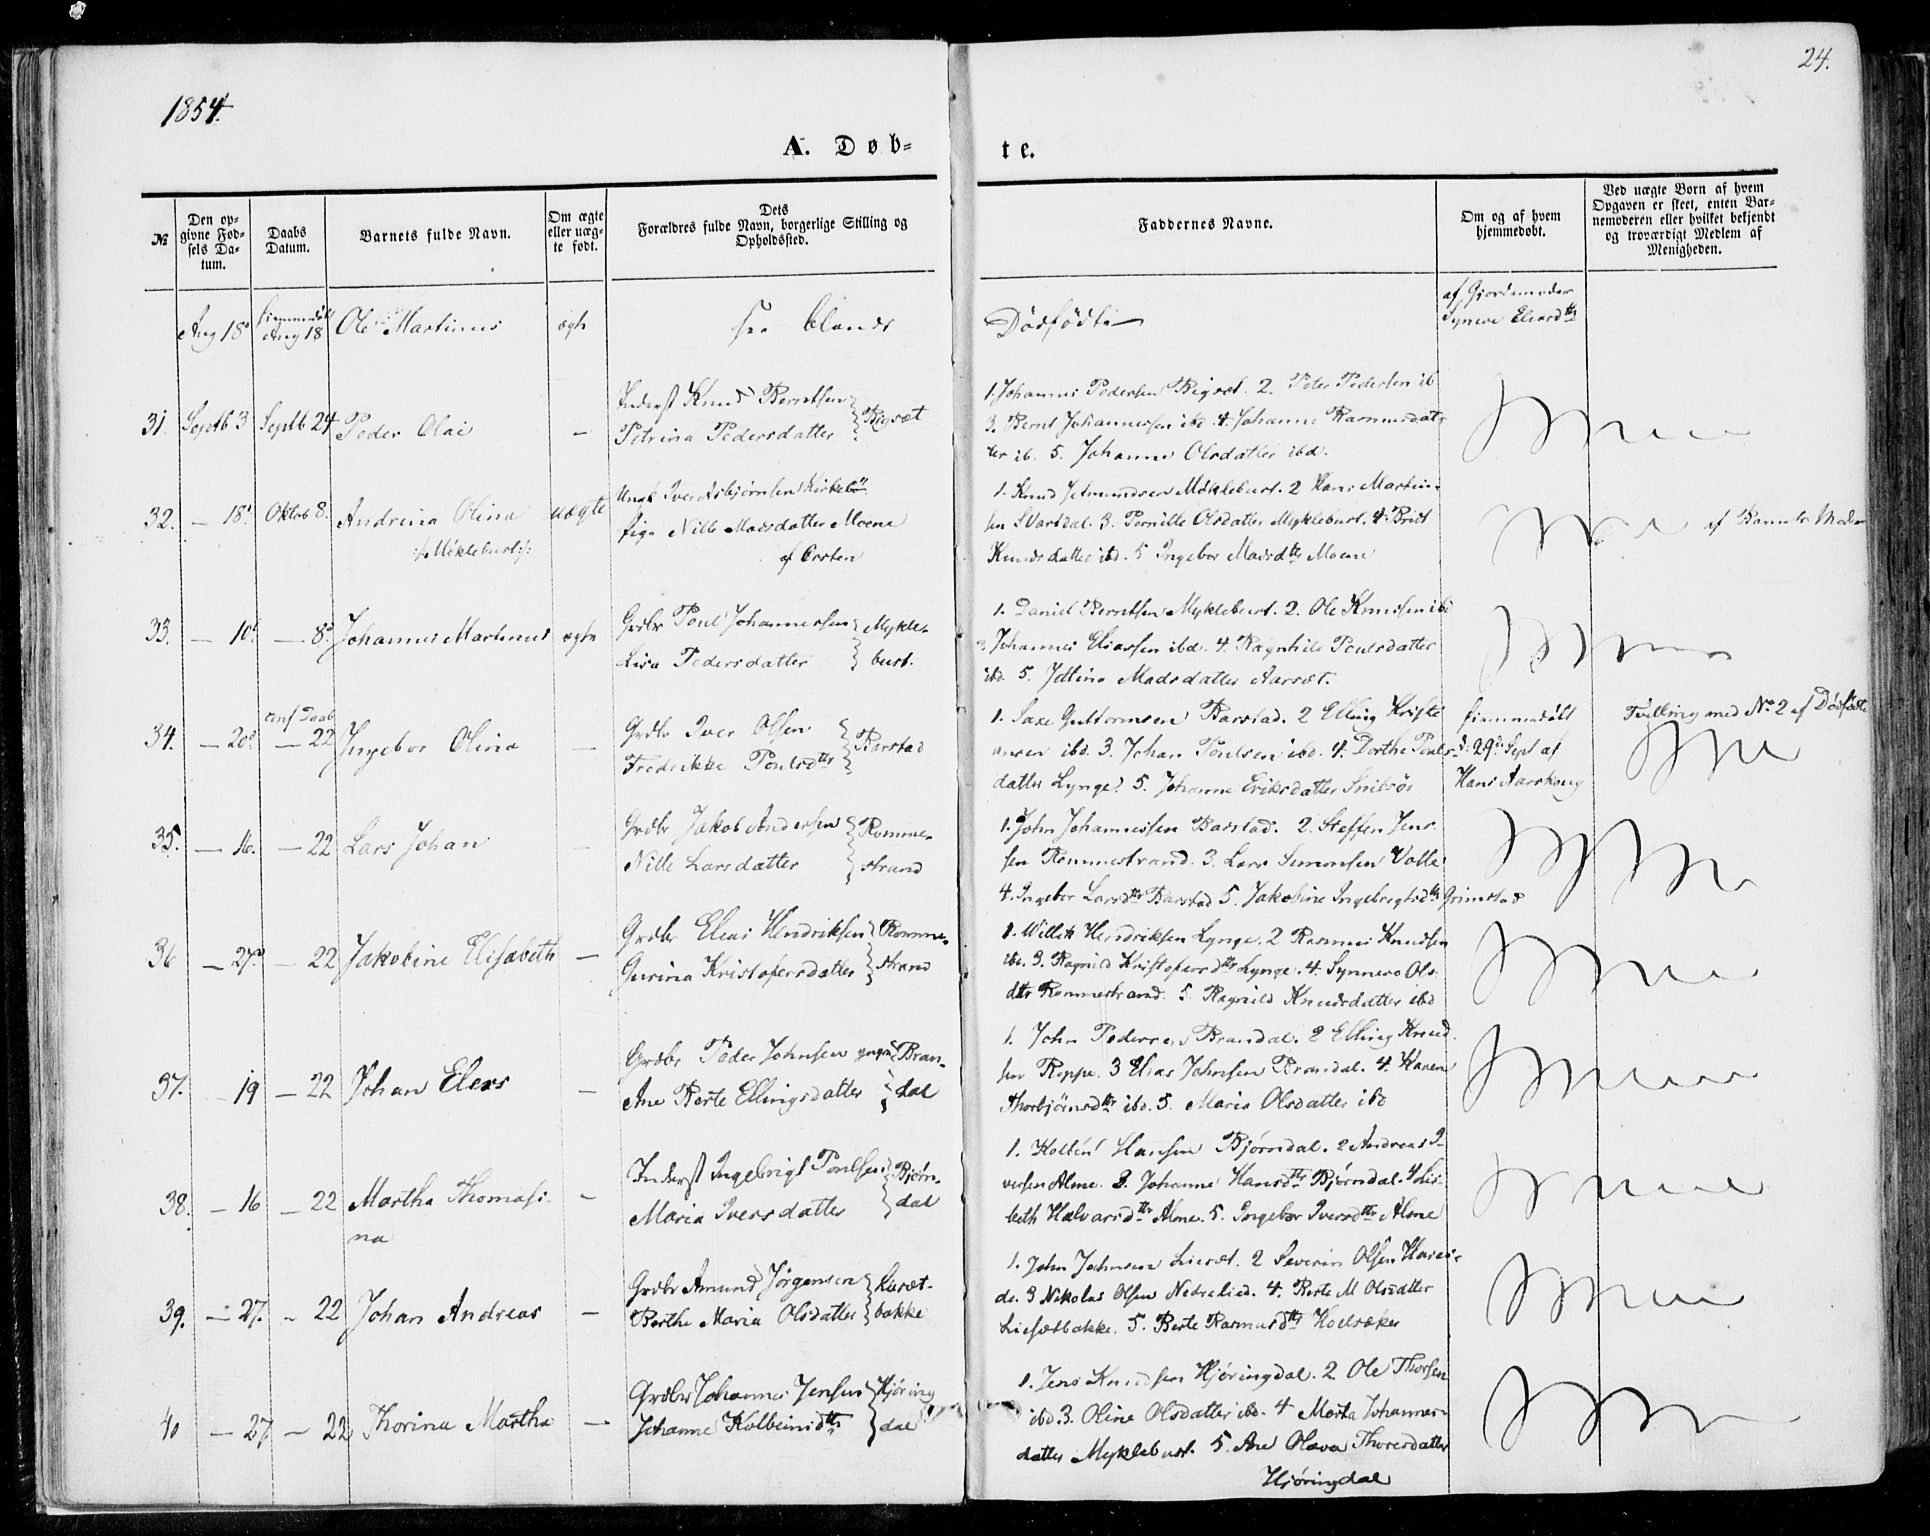 24.
1854.
A. Døb-
te.
№
Den op-
givne Fød-
sels Da-
tum.
Daabs
Datum.
Barnets fulde Navn.
Om ægte
eller uæg-
te født.
Dets
Forældres fulde Navn, borgerlige Stilling og
Opholdssted.
Faddernes Navne.
Om og af hvem
hjemmedøbt.
Ved uægte Børn af hvem
Opgaven er skeet, enten Bar-
nemoderen eller hvilket bekjendt
og troværdigt Medlem af
Menigheden.
Aug 18 hjemmedøbt Aug 18 Ole Martinus ægte see blandt
Dødfødte
af Gjordemoder
Syneve Elias dtr
31. Septb 3 Septb 24 Peder Olai —
Inderst Knud Berntsen
Petrina Pedersdatter } Bigsæt
1. Johannes Pedersen Bigsæt. 2. Peter Pedersen ib
3. Bernt Johannessen ibd. 4. Johanne Rasmusdat-
ter ib. 5. Johanne Olsdatter ibd.
32. — 18. Oktob 8. Andrine Oline uægte
/: Mikleburst :/
Ungk Iver Asbjørnsen Kirkebø
Pige Nille Madsdatter Moene
af Ørsten
1. Knud Jetmundsen Mykleburst. 2 Hans Martin-
sen Svartdal. 3. Pernille Olsdatter Mykleburst. 4. Brit
Knudsdatter ibd. 5 Ingebor Madsdtr Moene
af Barnets Moder
33. — 10. — 8. Johannes Martinus ægte
Grdbr Poul Johannessen
Lisa Pedersdatter } Mykle-
burst.
1. Daniel Berntsen Mykleburst. 2. Ole Knudsen ibd
3 Johannes Eliassen ibd. 4. Ragnhilde Poulsdatter
ibd 5. Jetlina Madsdatter Aarsæt.
34. — 20. conf Daab — 22 Ingebor Olina —
Grdbr Iver Olsen
Fredrikke Poulsdtr } Barstad
1. Saxe Guttormsen Barstad. 2 Elling Kristi
ansen ibd. 3. Johan Poulsen ibd. 4. Dorthe Pouls-
datter Lynge. 5. Johanne Eriksdatter Snibsør
hjemmedøbt
d. 29 Sept af
Hans Aarskoug
Tvilling med No 2 af Dødfødte
35. — 16. — 22 Lars Johan —
Grdbr Jakob Andersen
Nille Larsdatter } Romme-
strand
1. John Johannessen Barstad. 2. Steffen Jen-
sen Rommestrand. 3. Lars Simonsen Valle
4. Ingebor Larsdtr Barstad 5. Jakobine Ingebrigtsdtr Grimstad
36 — 27. — 22 Jakobine Elisabeth —
Grdbr Elias Hendriksen
Gurina Kristofersdatter } Romme-
strand
1. Willik Hendriksen Lynge. 2 Rasmus Knudsen
ibd. 3. Ragnild Kristofersdtr Lynge. 4. Synneva Ols-
dtr Rommestrand. 5. Ragnild Knudsdatter ibd
37. — 19 — 22 Johan Elens —
Grdbr Peder Johnsen yngre
Ane Berte Ellingsdatter } Bran-
dal
1. John Pedersen Brandal. 2 Elling Knud-
sen Reppe. 3 Elias Johnsen Brandal. 4. Karen
Thorbjørnsdtr ibd. 5. Maria Olsdatter ibd
38. — 16 — 22 Martha Thomasi-
na —
Inderst Ingebrigt Poulsen
Maria Iversdatter } Bjørn-
dal
1. Kolben Hansen Bjørndal. 2 Andreas I-
versen Alme. 3. Johanne Hansdtr Bjørndal. 4 Lis-
beth Halvarsdtr Alme. 5. Ingebor Iversdtr Alme
39. — 27. — 22 Johan Andreas —
Grdbr Amund Jørgensen
Berthe Maria Olsdatter } Liesæt-
bakke
1. John Johnsen Liesæt. 2 Severin Olsen Harei-
de. 3 Nikolas Olsen Nedrelied. 4. Berte M Olsdatter
Liesætbakke. 5. Berte Rasmusdtr Hovlsæker
40 — 27 — 22 Thorina Martha —
Grdbr Johannes Jensen
Johanne Kolbeinsdtr } Hjøring
dal
1. Jens Knudsen Hjøringdal. 2 Ole Thorsen
ibd. 3. Oline Olsdatter ibd. 4 Marta Johannes-
datter Mykleburst. 5. Ane Olava Thoresdatter
Hjøringdal